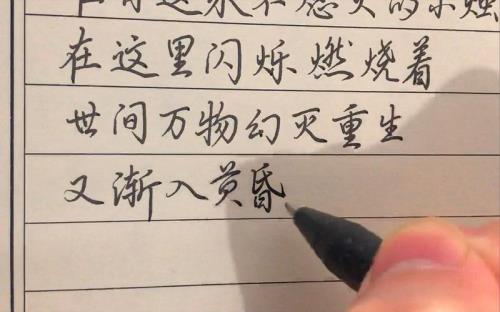 在这里闪烁燃烧着
世间万物幻灭重生
又渐入黄昏